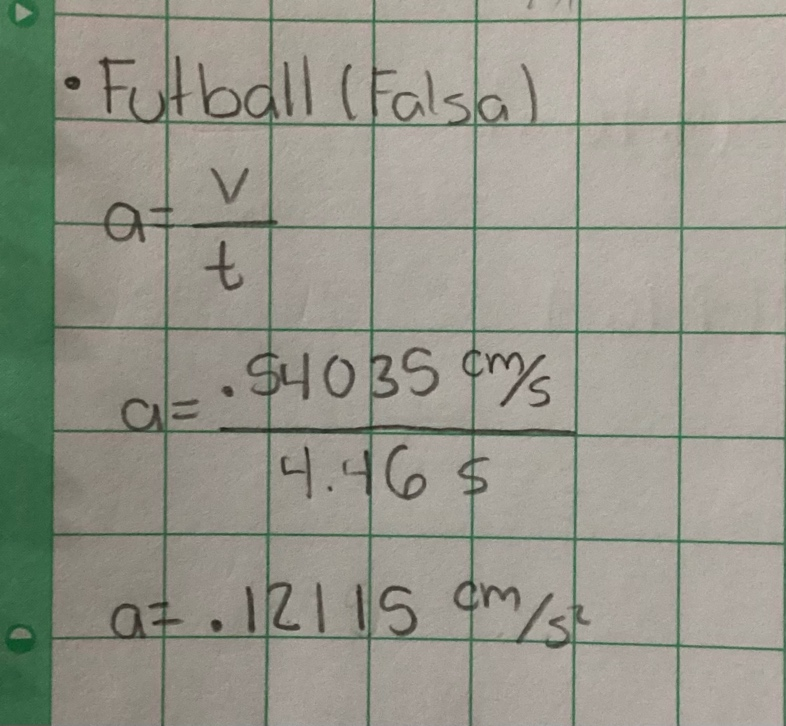 • Futball (Falsa)
a = v
t
a = .54035 cm/s
4.46 s
a = .12115 cm/s²